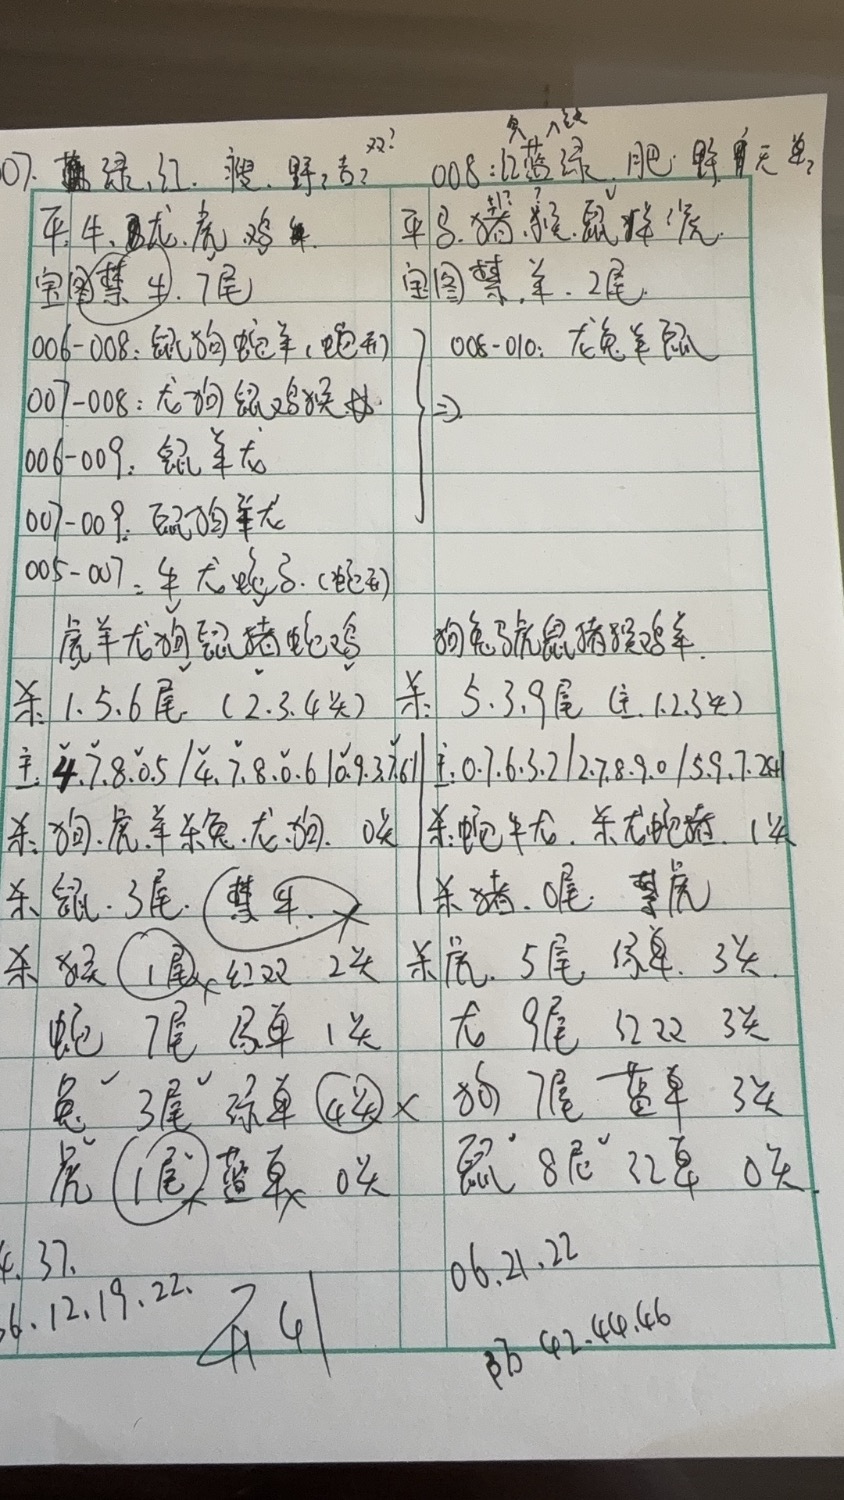 07. 蓝 绿、红. 瘦. 野? 吉? 双?
平. 牛. 龙. 虎. 鸡
宝图禁牛. 7尾
006-008: 鼠狗蛇羊(蛇开)
007-008: 龙狗鼠鸡猴
006-009: 鼠羊龙
007-009: 鼠狗羊龙
005-007: 牛龙蛇马. (蛇开)
虎羊龙狗鼠猪蛇鸡
杀: 1. 5. 6尾. (2. 3. 4头)
主. 4. 7. 8. 0. 5 / 4. 7. 8. 0. 6 / 0. 9. 3. 7. 6
杀: 狗. 虎. 羊 杀兔. 龙. 狗. 0头
杀. 鼠. 3尾. 禁牛. ×
杀 猴 1尾× 红双 2头
蛇 7尾 绿单 1头
兔 3尾 绿单 4头 ×
虎 1尾× 蓝单× 0头
4. 37.
36. 12. 19. 22.
开 41
008: 红蓝绿. 肥. 野 天 单?
平马. 猪. 猴. 鼠 羊 虎.
宝图禁. 羊. 2尾.
008-010: 龙兔羊鼠
狗兔马虎鼠猪猴鸡羊.
杀: 5. 3. 9尾 (主. 1. 2. 3头)
主. 0. 7. 6. 3. 2 / 2. 7. 8. 9. 0 / 5. 9. 7.
杀: 蛇牛龙. 杀龙蛇猪. 1头
杀 猪. 0尾. 禁虎
杀虎. 5尾 绿单. 3头.
龙 9尾 红双 3头
狗 7尾 蓝单 3头
鼠 8尾 红单 0头.
06. 21. 22
防 42. 44. 46